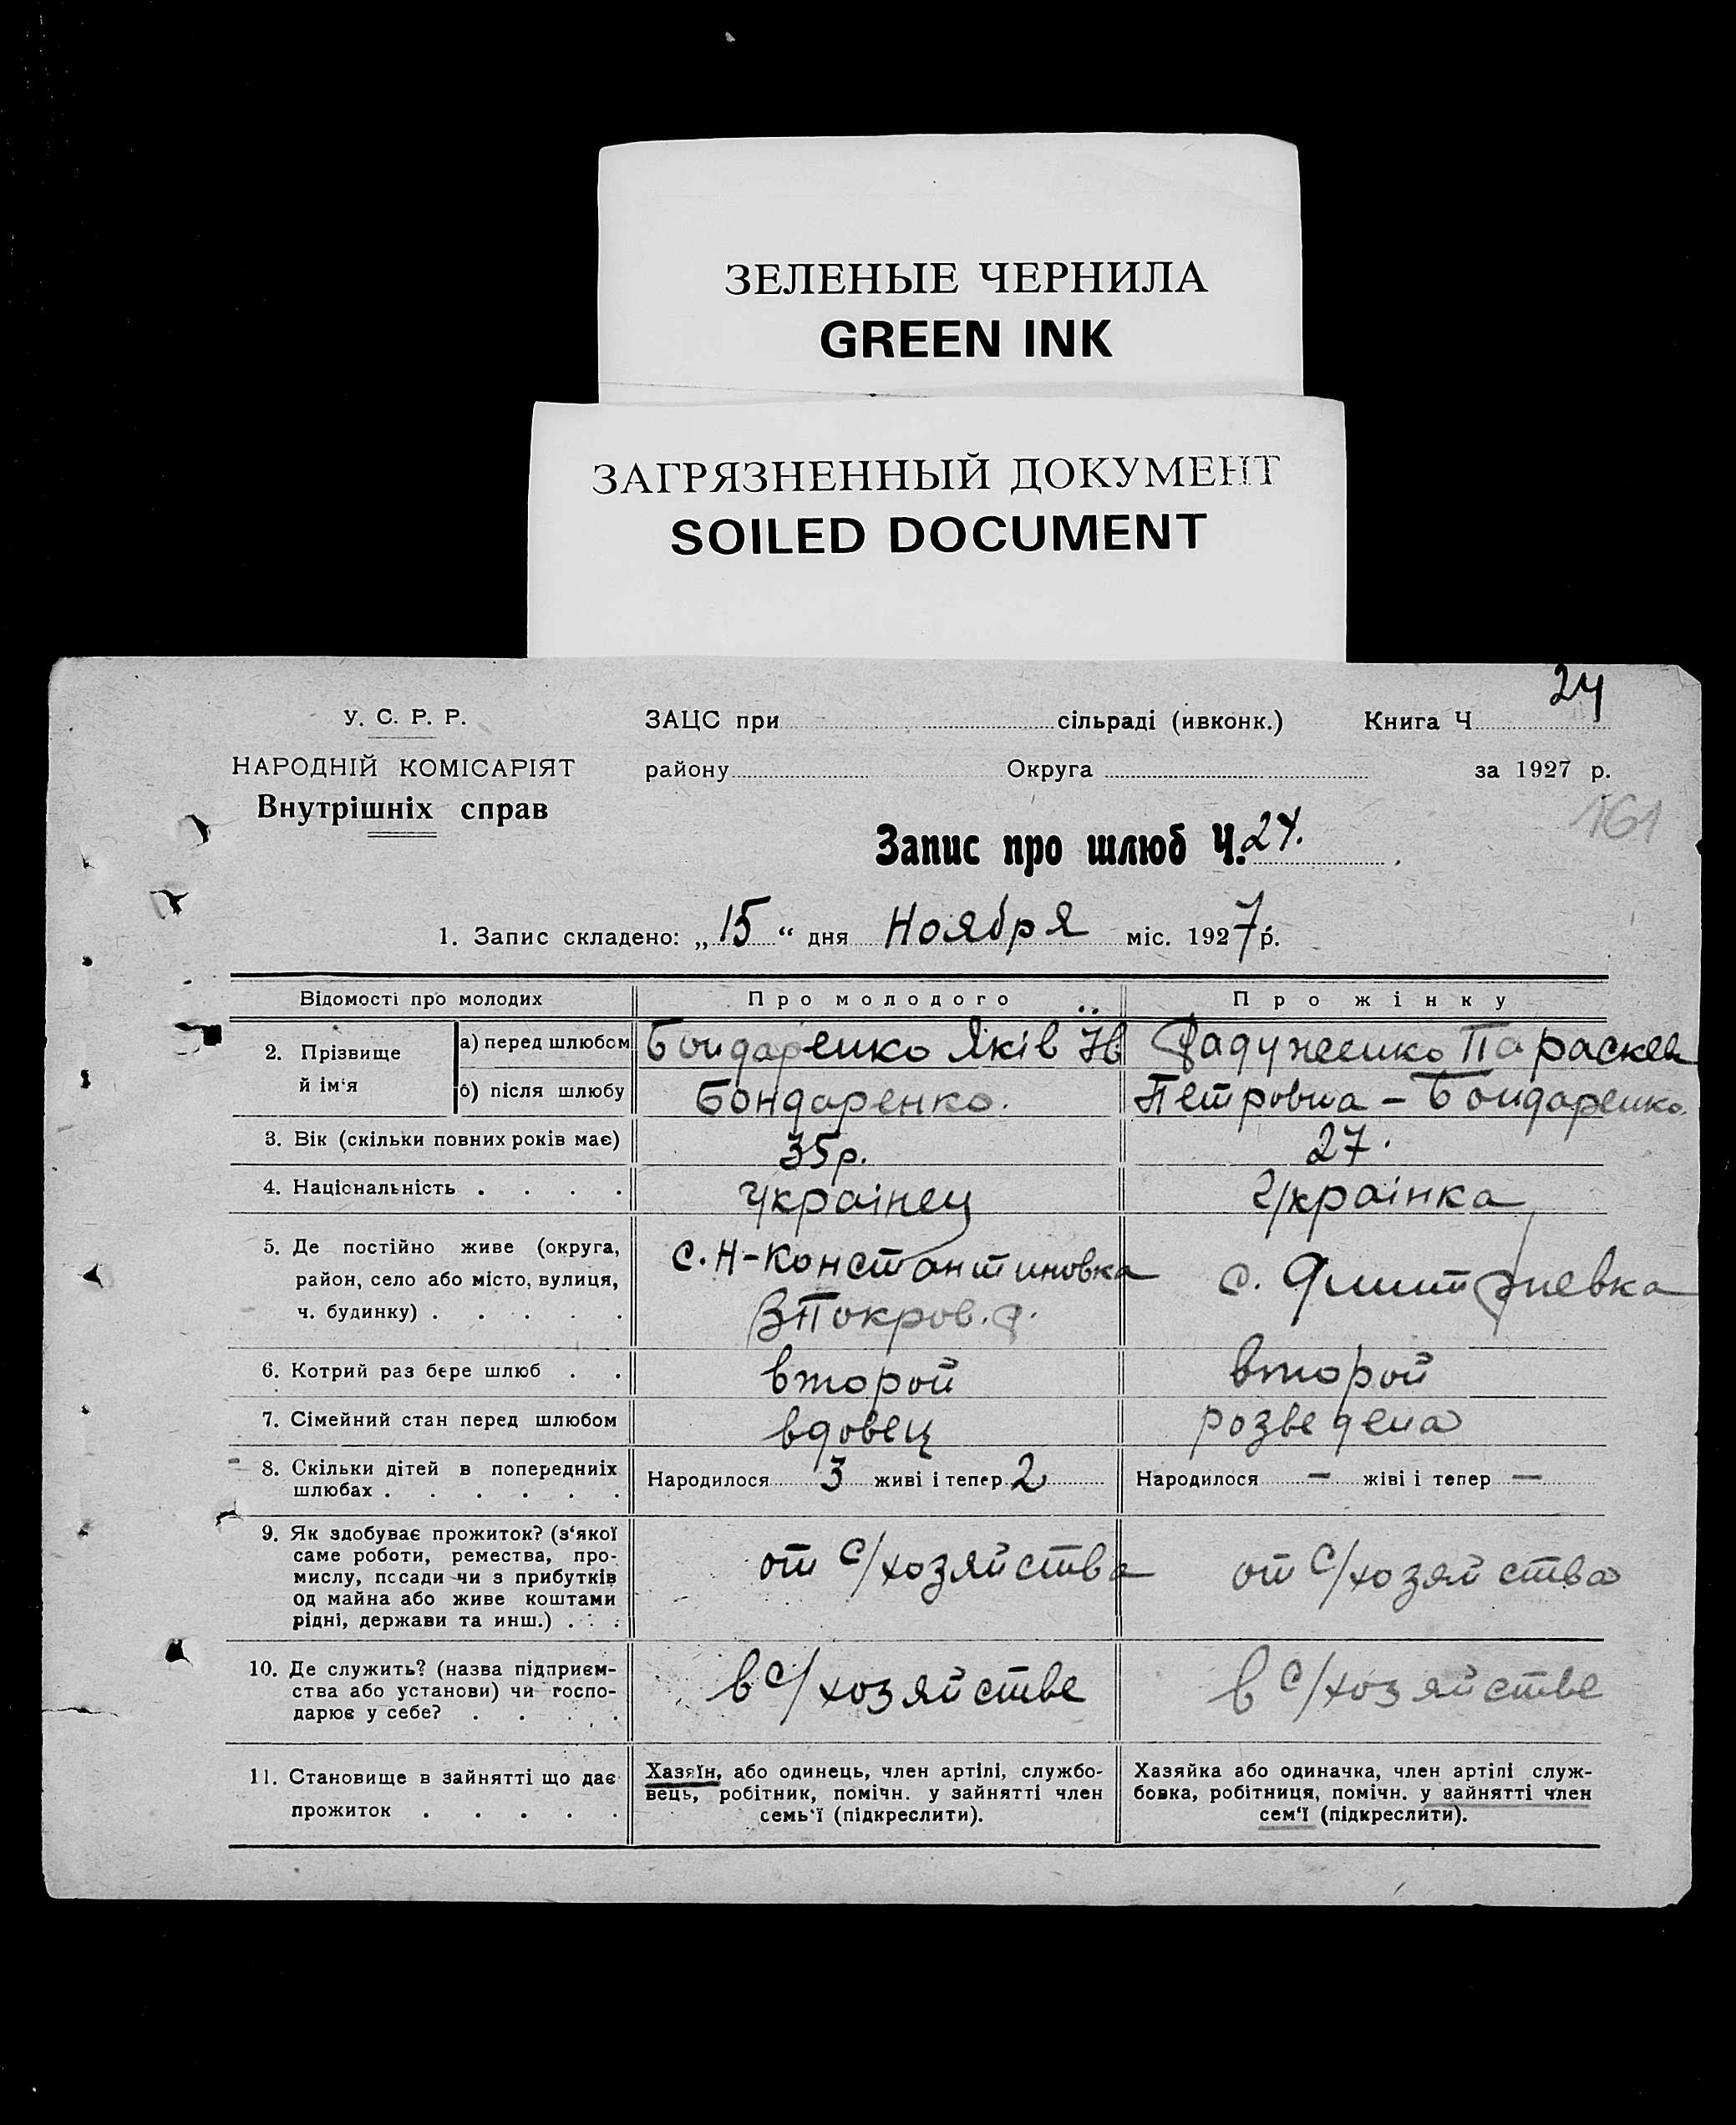 ЗЕЛЕНЫЕ ЧЕРНИЛА
GREEN INK
ЗАГРЯЗНЕННЫЙ ДОКУМЕНТ
SOILED DOCUMENT
24
У. С. Р. Р.
ЗАЦС при сільраді (ивконк.) Книга Ч
НАРОДНІЙ КОМІСАРІЯТ
району Округа за 1927 р.
Внутрішніх справ
161
Запис про шлюб Ч. 24.
1. Запис складено: „15“ дня Ноября міс. 1927 р.
Відомості про молодих Про молодого Про жінку
2. Прізвище й ім‘я
а) перед шлюбом Бондаренко Яків Параскев
б) після шлюбу Бондаренко. Петровна – Бондаренко.
3. Вік (скільки повних років має) 35 р. 27.
4. Національність . . . . Украінец Украінка
5. Де постійно живе (округа,
район, село або місто, вулиця,
ч. будинку) . . . . .
с. Н-Константиновка
ВПокров. р.
с. Дмитриевка
6. Котрий раз бере шлюб . . второй второй
7. Сімейний стан перед шлюбом вдовец розведена
8. Скільки дітей в попередниіх
шлюбах . . . . . .
Народилося 3 живі і тепер 2
Народилося — жіві і тепер —
9. Як здобуває прожиток? (з‘якої
саме роботи, ремества, про-
мислу, пссади чи з прибутків
од майна або живе коштами
рідні, держави та инш.) . . .
от с/хозяйства
от с/хозяйства
10. Де служить? (назва підприєм-
ства або установи) чи госпо-
дарює у себе? . . . .
в с/хозяйстве
в с/хозяйстве
11. Становище в зайнятті що дає
прожиток . . . . .
Хазяїн, або одинець, член артілі, службо-
вець, робітник, помічн. у зайнятті член
семь‘ї (підкреслити).
Хазяйка або одиначка, член артілі служ-
бовка, робітниця, помічн. у зайнятті член
сем‘ї (підкреслити).